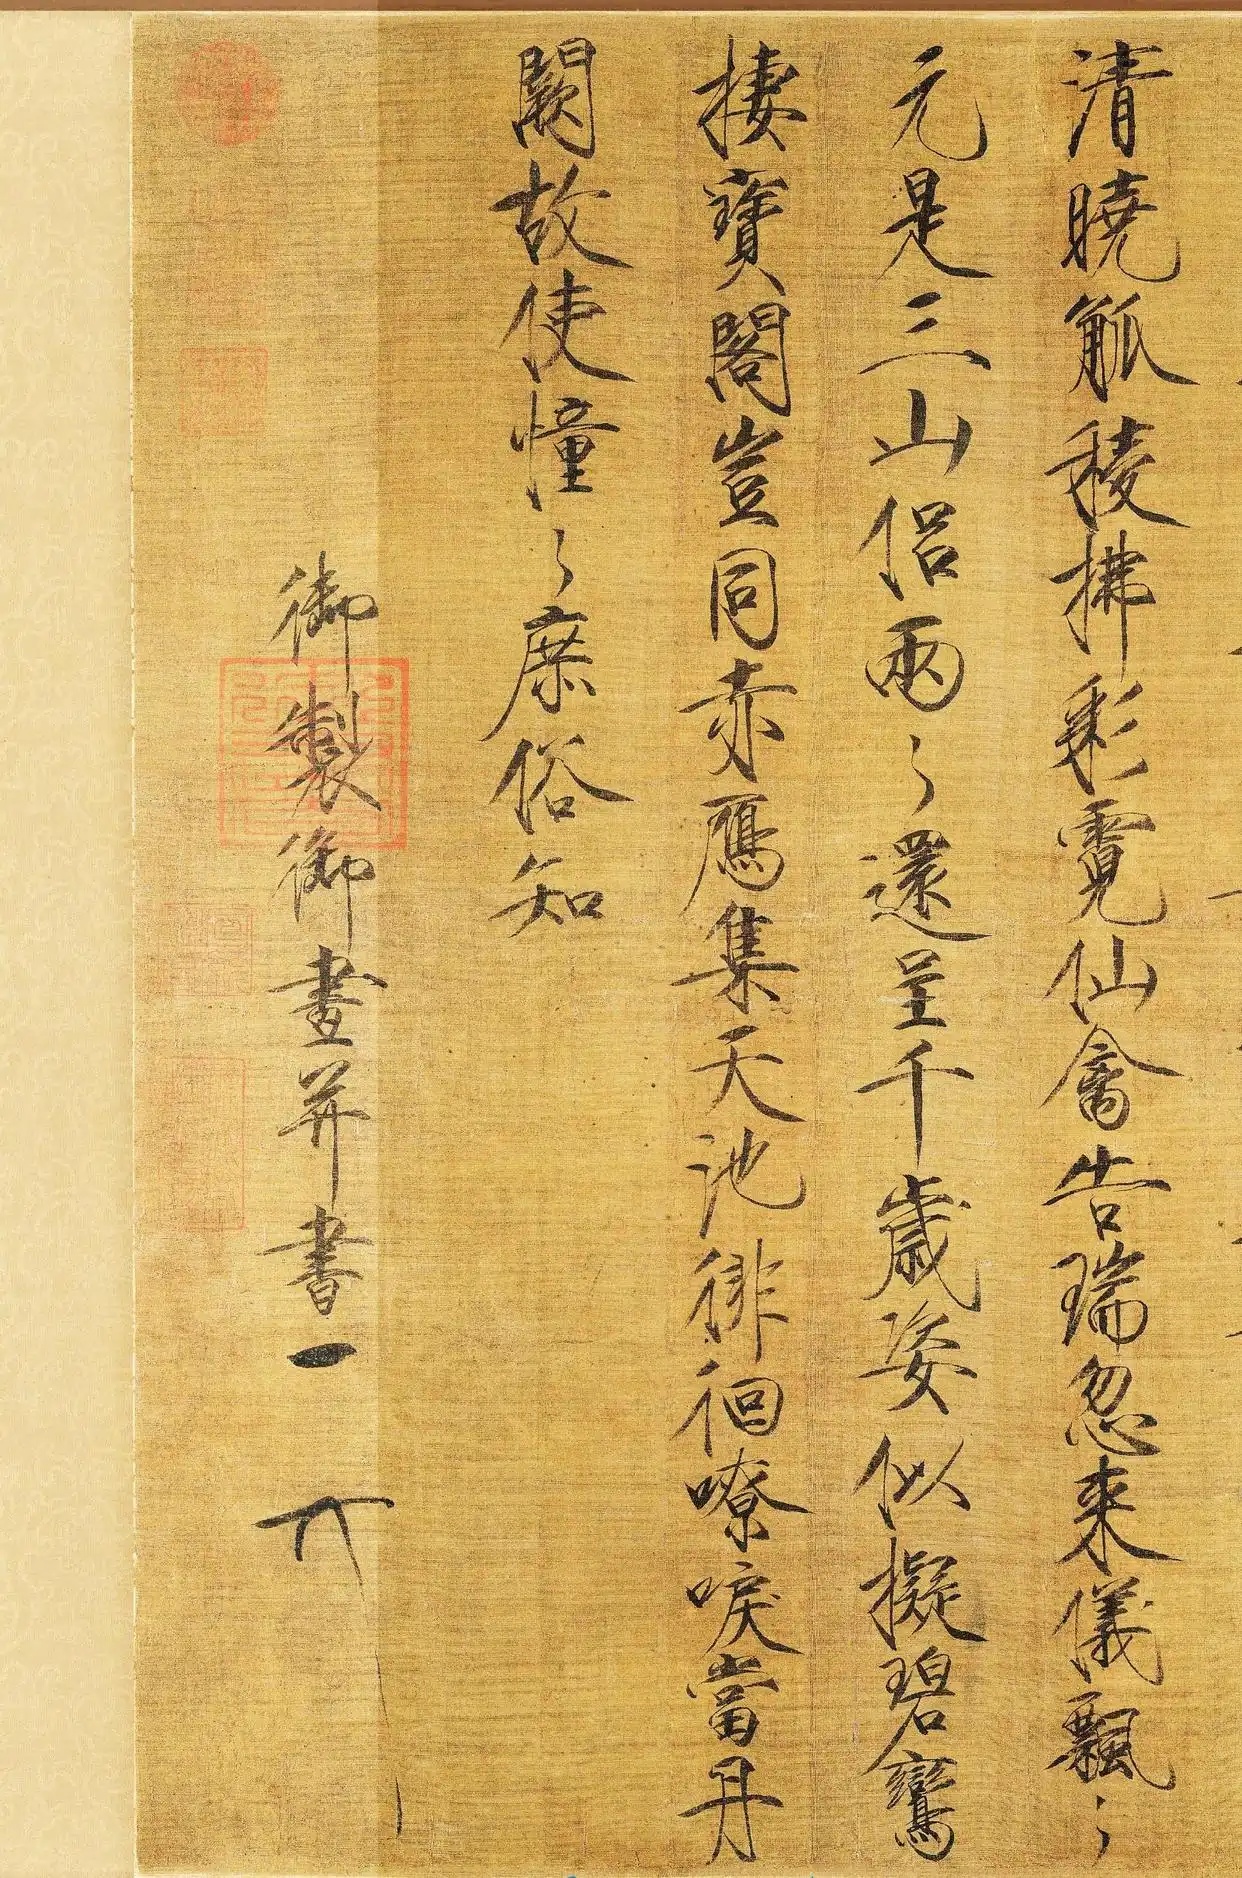 清曉觚稜拂彩霓仙禽告瑞忽来儀飄〻
元是三山侣兩〻還呈千歳姿似擬碧鸞
棲寶閣豈同赤鴈集天池徘徊嘹唳當丹
闕故使憧〻庶俗知
御製御畫并書